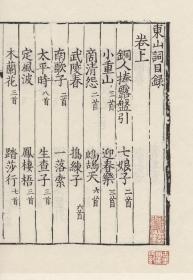 東山詞目錄
卷上
銅人捧露盤引 七娘子二首
小重山二首 迎春樂三首
商清怨二首 鷓鴣天六首
武陵春 擣練子六首
南歌子二首 一落索
太平時八首 生查子三首
定風波 鳳棲梧二首
木蘭花二首 踏莎行七首